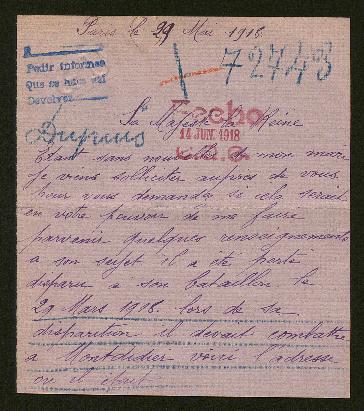 Paris le 29 Mai 1918
72743
Pedir informes
Que se haian
Devolver
Dupuis
Sa Majesté la Reine
Fecho
14 JUN. 1918
Etant sans nouvelle de mon mari
je viens solliciter aupres de vous
pour vous demander si cela serait
en votre pouvoir de me faire
parvenir quelques renseignements
a son sujet il a été porté
disparu a son bataillon le
29 Mars 1918. lors de sa
disparition il devait combattre
a Montdidier voici l'adresse
ou il etait